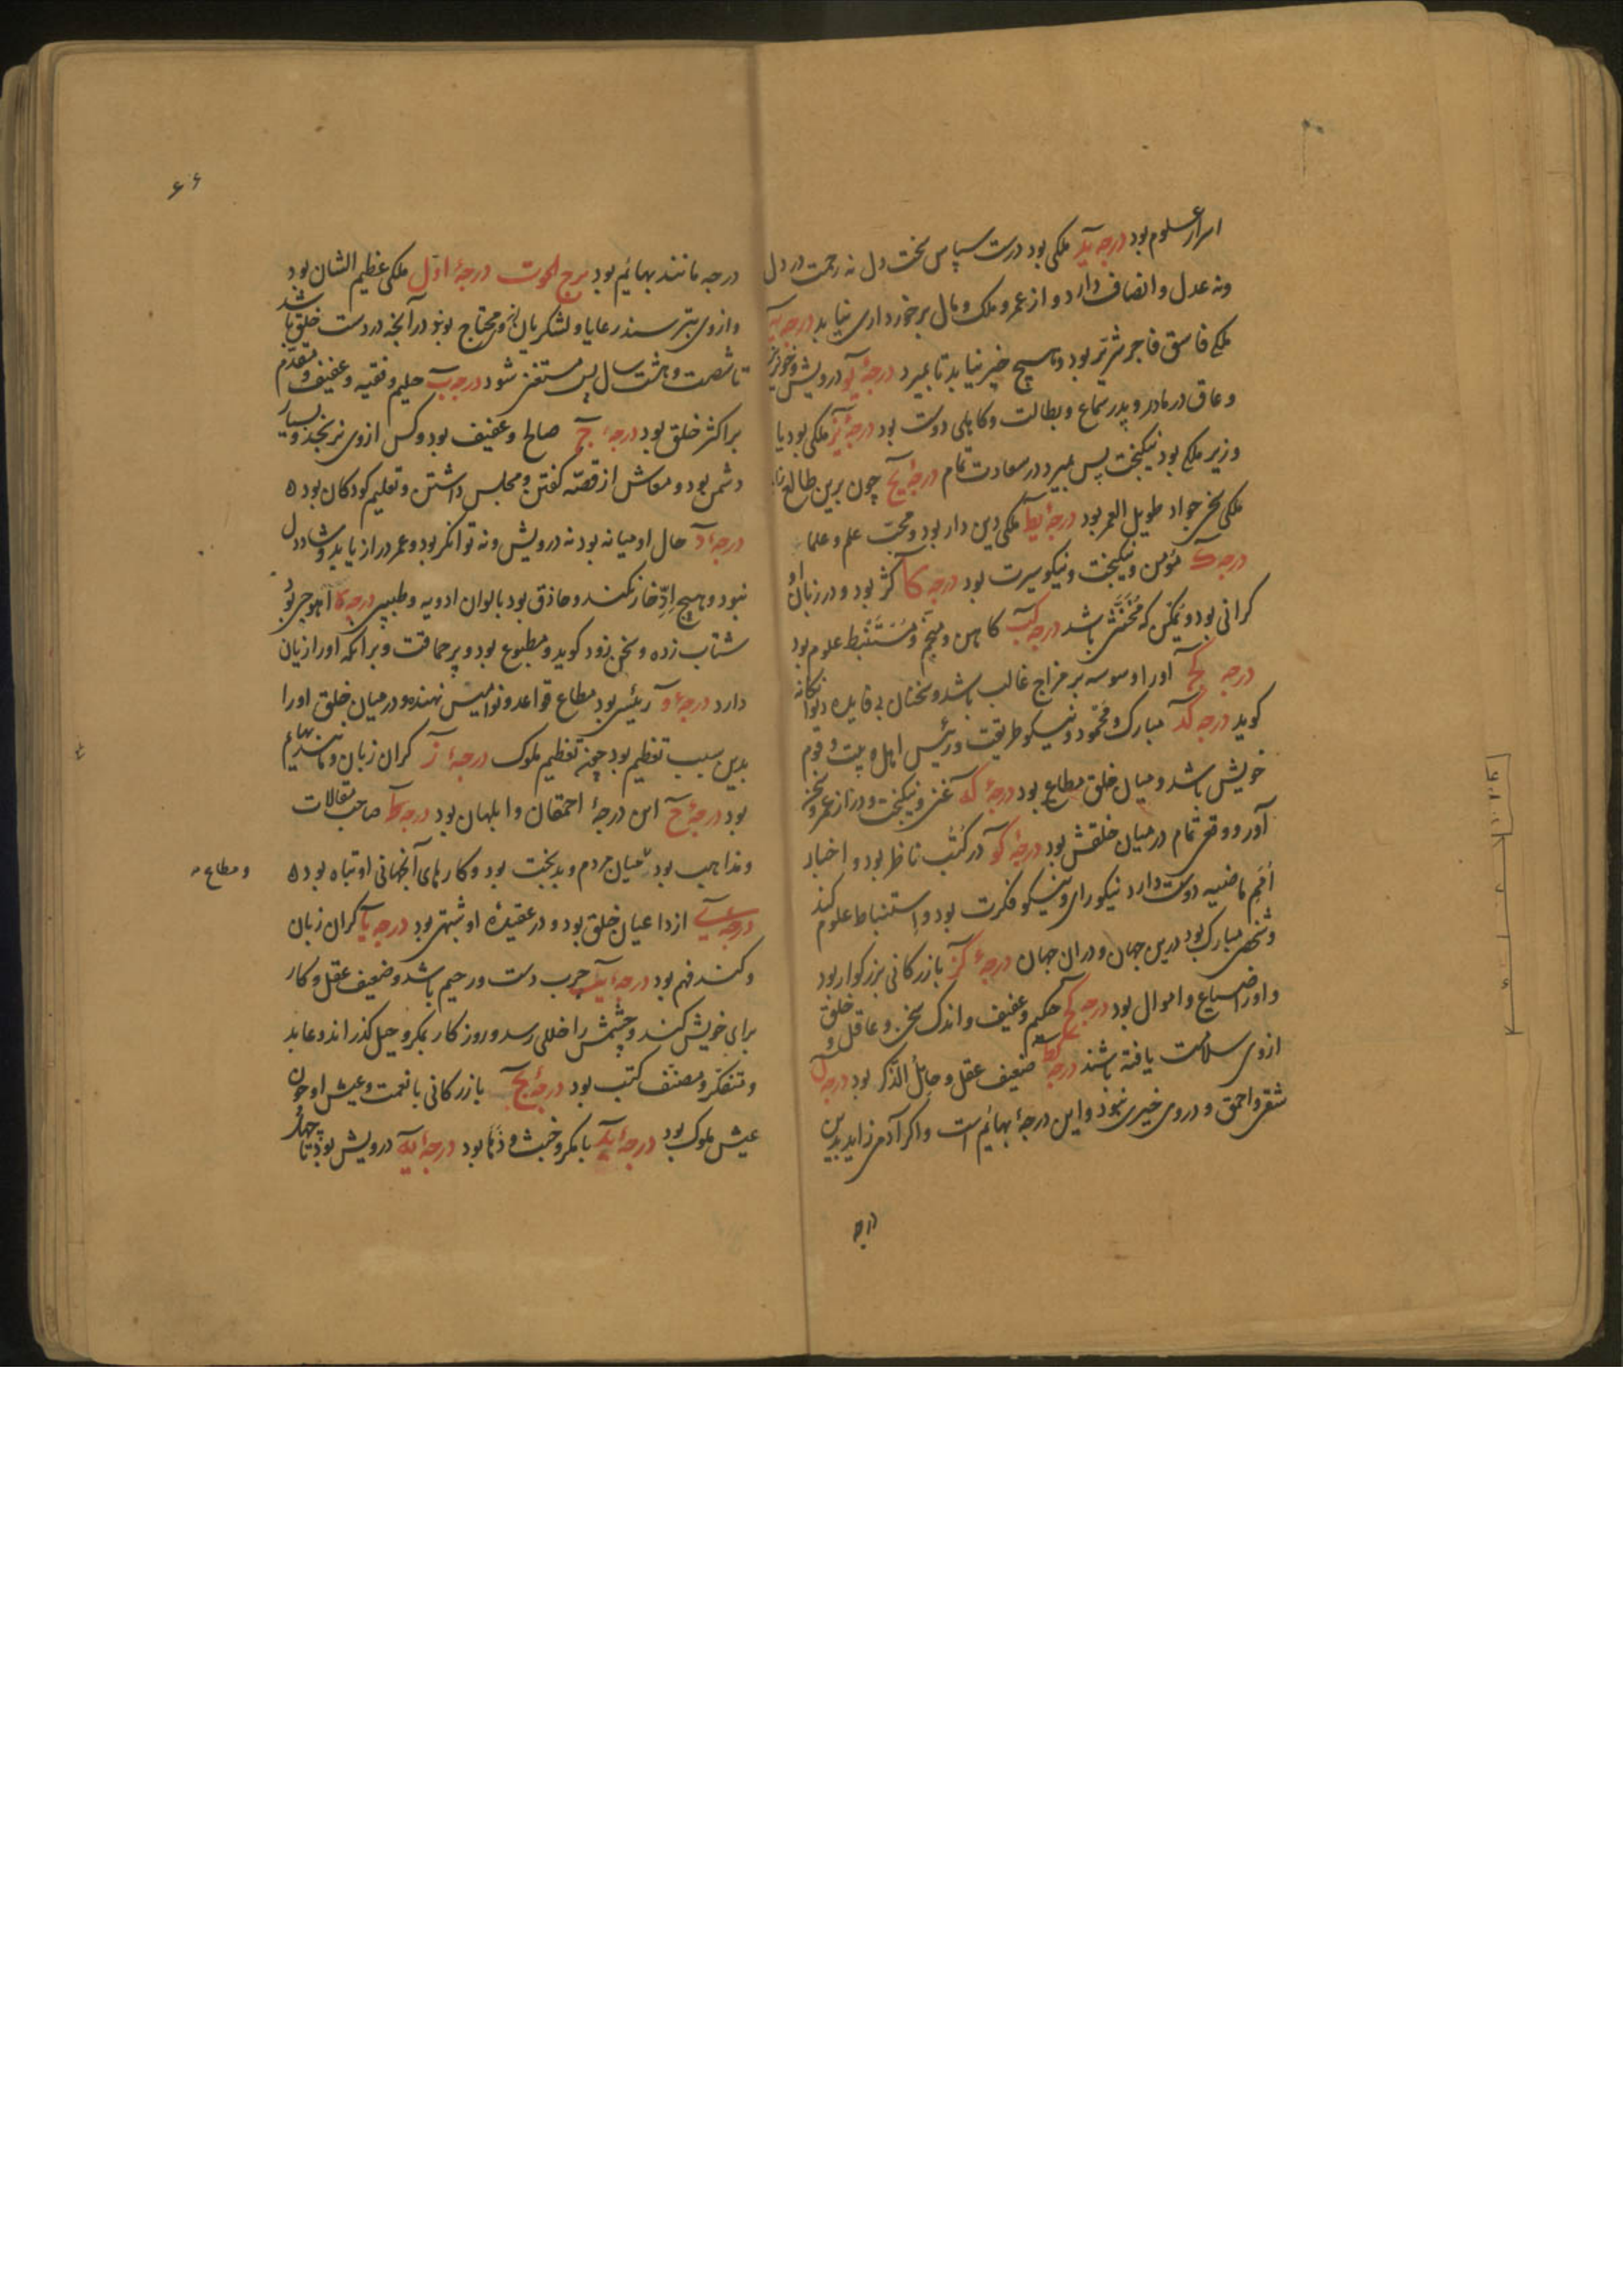 اسرار علوم بود درجه ید ملکی بود درست سپاس سخت دل نه رحمت در دل
ونه عدل و انصاف دارد و از عمر و ملک و مال برخورداری نیابد درجه یه
ملکی فاسق فاجر شریر بود و هیچ خیر نیابد تا بمیرد درجهٔ یو درویش و خونریز
و عاق در مادر و پدر سماع و بطالت و کاهلی دوست بود درجهٔ یز ملکی بود یا
وزیر ملکی بود نیکبخت پس بمیرد در سعادت تمام درجهٔ یح چون برین طالع زاید
ملکی سخی جواد طویل العمر بود درجهٔ یط ملکی دین دار بود و محب علم و علما
درجه ک مؤمن و نیکبخت و نیکو سیرت بود درجه کا کژ بود و در زبان او
کرانی بود و ممکن که مخنث باشد درجه کب کاهن و منجم و مستنبط علوم بود
درجه کج او را وسوسه بر مزاج غالب باشد و سخنان بی فایده دیوانکانه
کوید درجه کد مبارک و محمود و نیکو طریقت و رئیس اهل و بیت و قوم
خویش باشد و میان خلق مطاع بود درجهٔ که غنی و نیکبخت و دراز عمر و سخن
آور و وقعی تمام در میان خلقش بود درجهٔ کو در کتب ناظر بود و اخبار
امم ماضیه دوست دارد نیکو رای و نیکو فکرت بود و استنباط علوم کند
و شخصی مبارک بود درین جهان و دران جهان درجهٔ کز بازرکانی بزرکوار بود
و او را ضیاع و اموال بود درجه کح حکیم و عفیف و اندک سخن و عاقل و خلق
ازوی سلامت یافته باشند درجه کط ضعیف عقل و خامل الذکر بود درجه ل
شقی و احمق و دروی خیری نبود و این درجهٔ بهائم است و اکر آدمی زاید بدین
درجه
۶۶
درجه مانند بهائم بود برج الحوت درجهٔ اول ملکی عظیم الشان بود
و ازوی بترسند رعایا و لشکریان و محتاج بوند در آنچه در دست خلق باشد
تا شصت و هشت سال پس مستغنی شود درجه ب حلیم و فقیه و عفیف و مقدم
بر اکثر خلق بود درجه ج صالح و عفیف بود و کس ازوی نرنجد و بسیار
دشمن بود و معاش از قصه کفتن و مجلس داشتن و تعلیم کودکان بود ه
درجهٔ د حال او میانه بود نه درویش و نه توانکر بود و عمر دراز یابد و شاددل
نبود و هیچ ادخار نکند و حاذق بود بالوان ادویه و طبیبی درجه ه اهوجی بود
شتاب زده و سخن زود کوید و مطبوع بود و پر حماقت و پراکمه او را زیان
دارد درجهٔ و رئیسی بود مطاع قواعد و نوامیس نهنده و در میان خلق او را
بدین سبب تعظیم بود چون تعظیم ملوک درجهٔ ز کران زبان و مانند بهایم
بود درجهٔ ح این درجهٔ احمقان و ابلهان بود درجه ط صاحب مقالات
و مذاهب بود میان مردم و بدبخت بود و کارهای آنجهانی او تباه بود ه
و مطاع
درجه ی از داعیان خلق بود و در عقیدهٔ او شبهتی بود درجه یا کران زبان
و کند فهم بود درجهٔ یب چرب دست و رحیم باشد و ضعیف عقل و کار
برای خویش کند و چشمش را خللی رسد و روزکار بمکر و حیل کذراند و عابد
و متفکر و مصنف کتب بود درجهٔ یج بازرکانی با نعمت و عیش او چون
عیش ملوک بود درجهٔ ید با مکر و خبث و دها بود درجهٔ یه درویش بود تا چهار